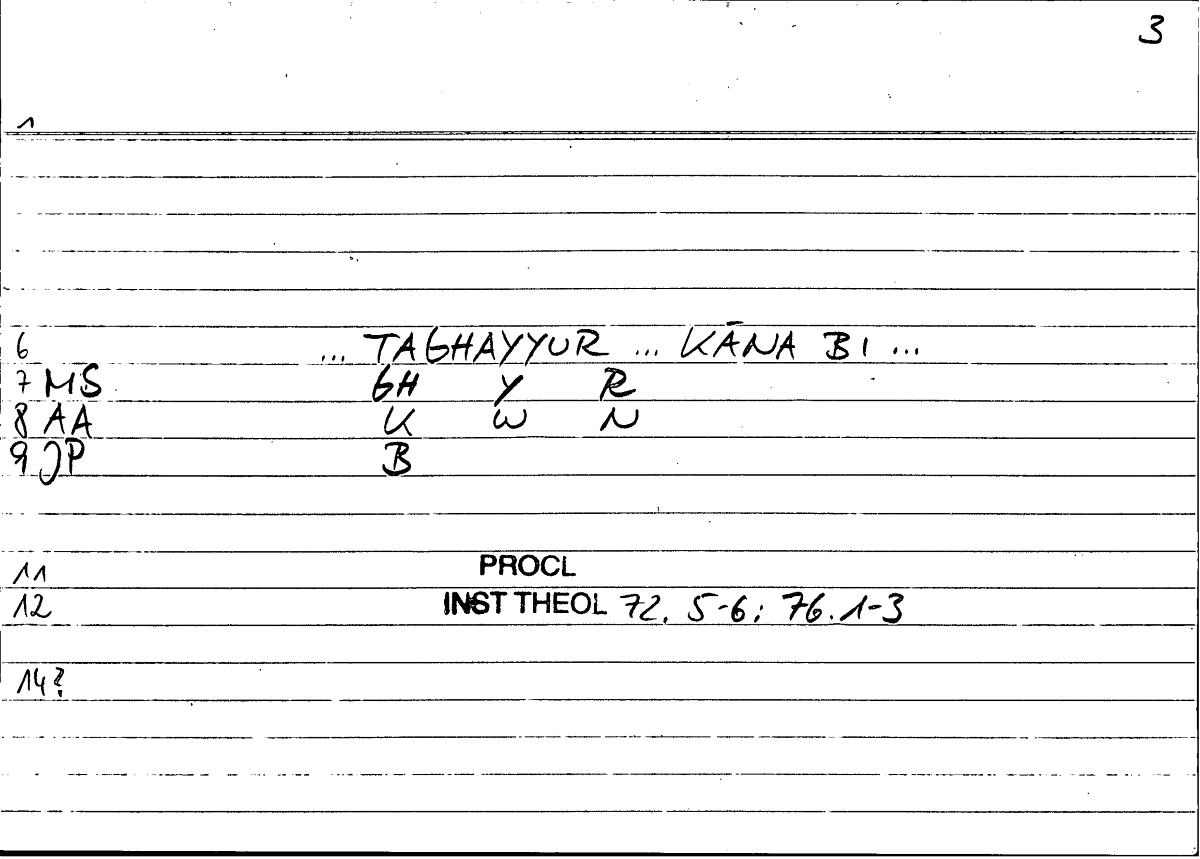 3
1
6 ... TAGHAYYUR ... KĀNA BI ...
7 MS GH Y R
8 AA K W N
9 JP B
11 PROCL
12 INST THEOL 72. 5-6; 76.1-3
14?